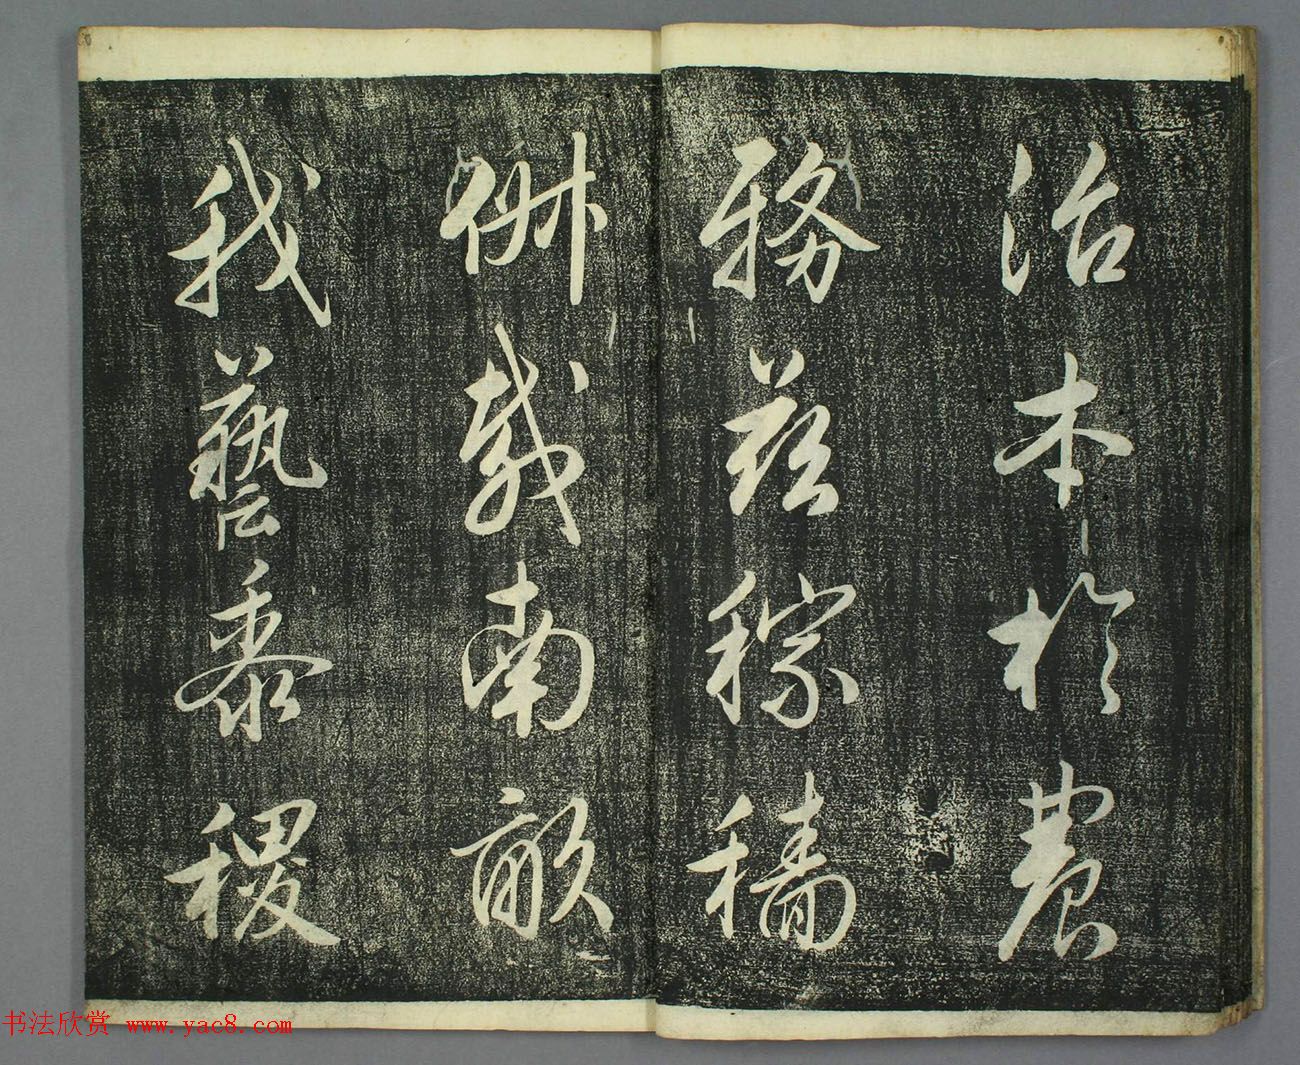 治本於農
務茲稼穡
俶載南畝
我藝黍稷
书法欣赏 www.yac8.com